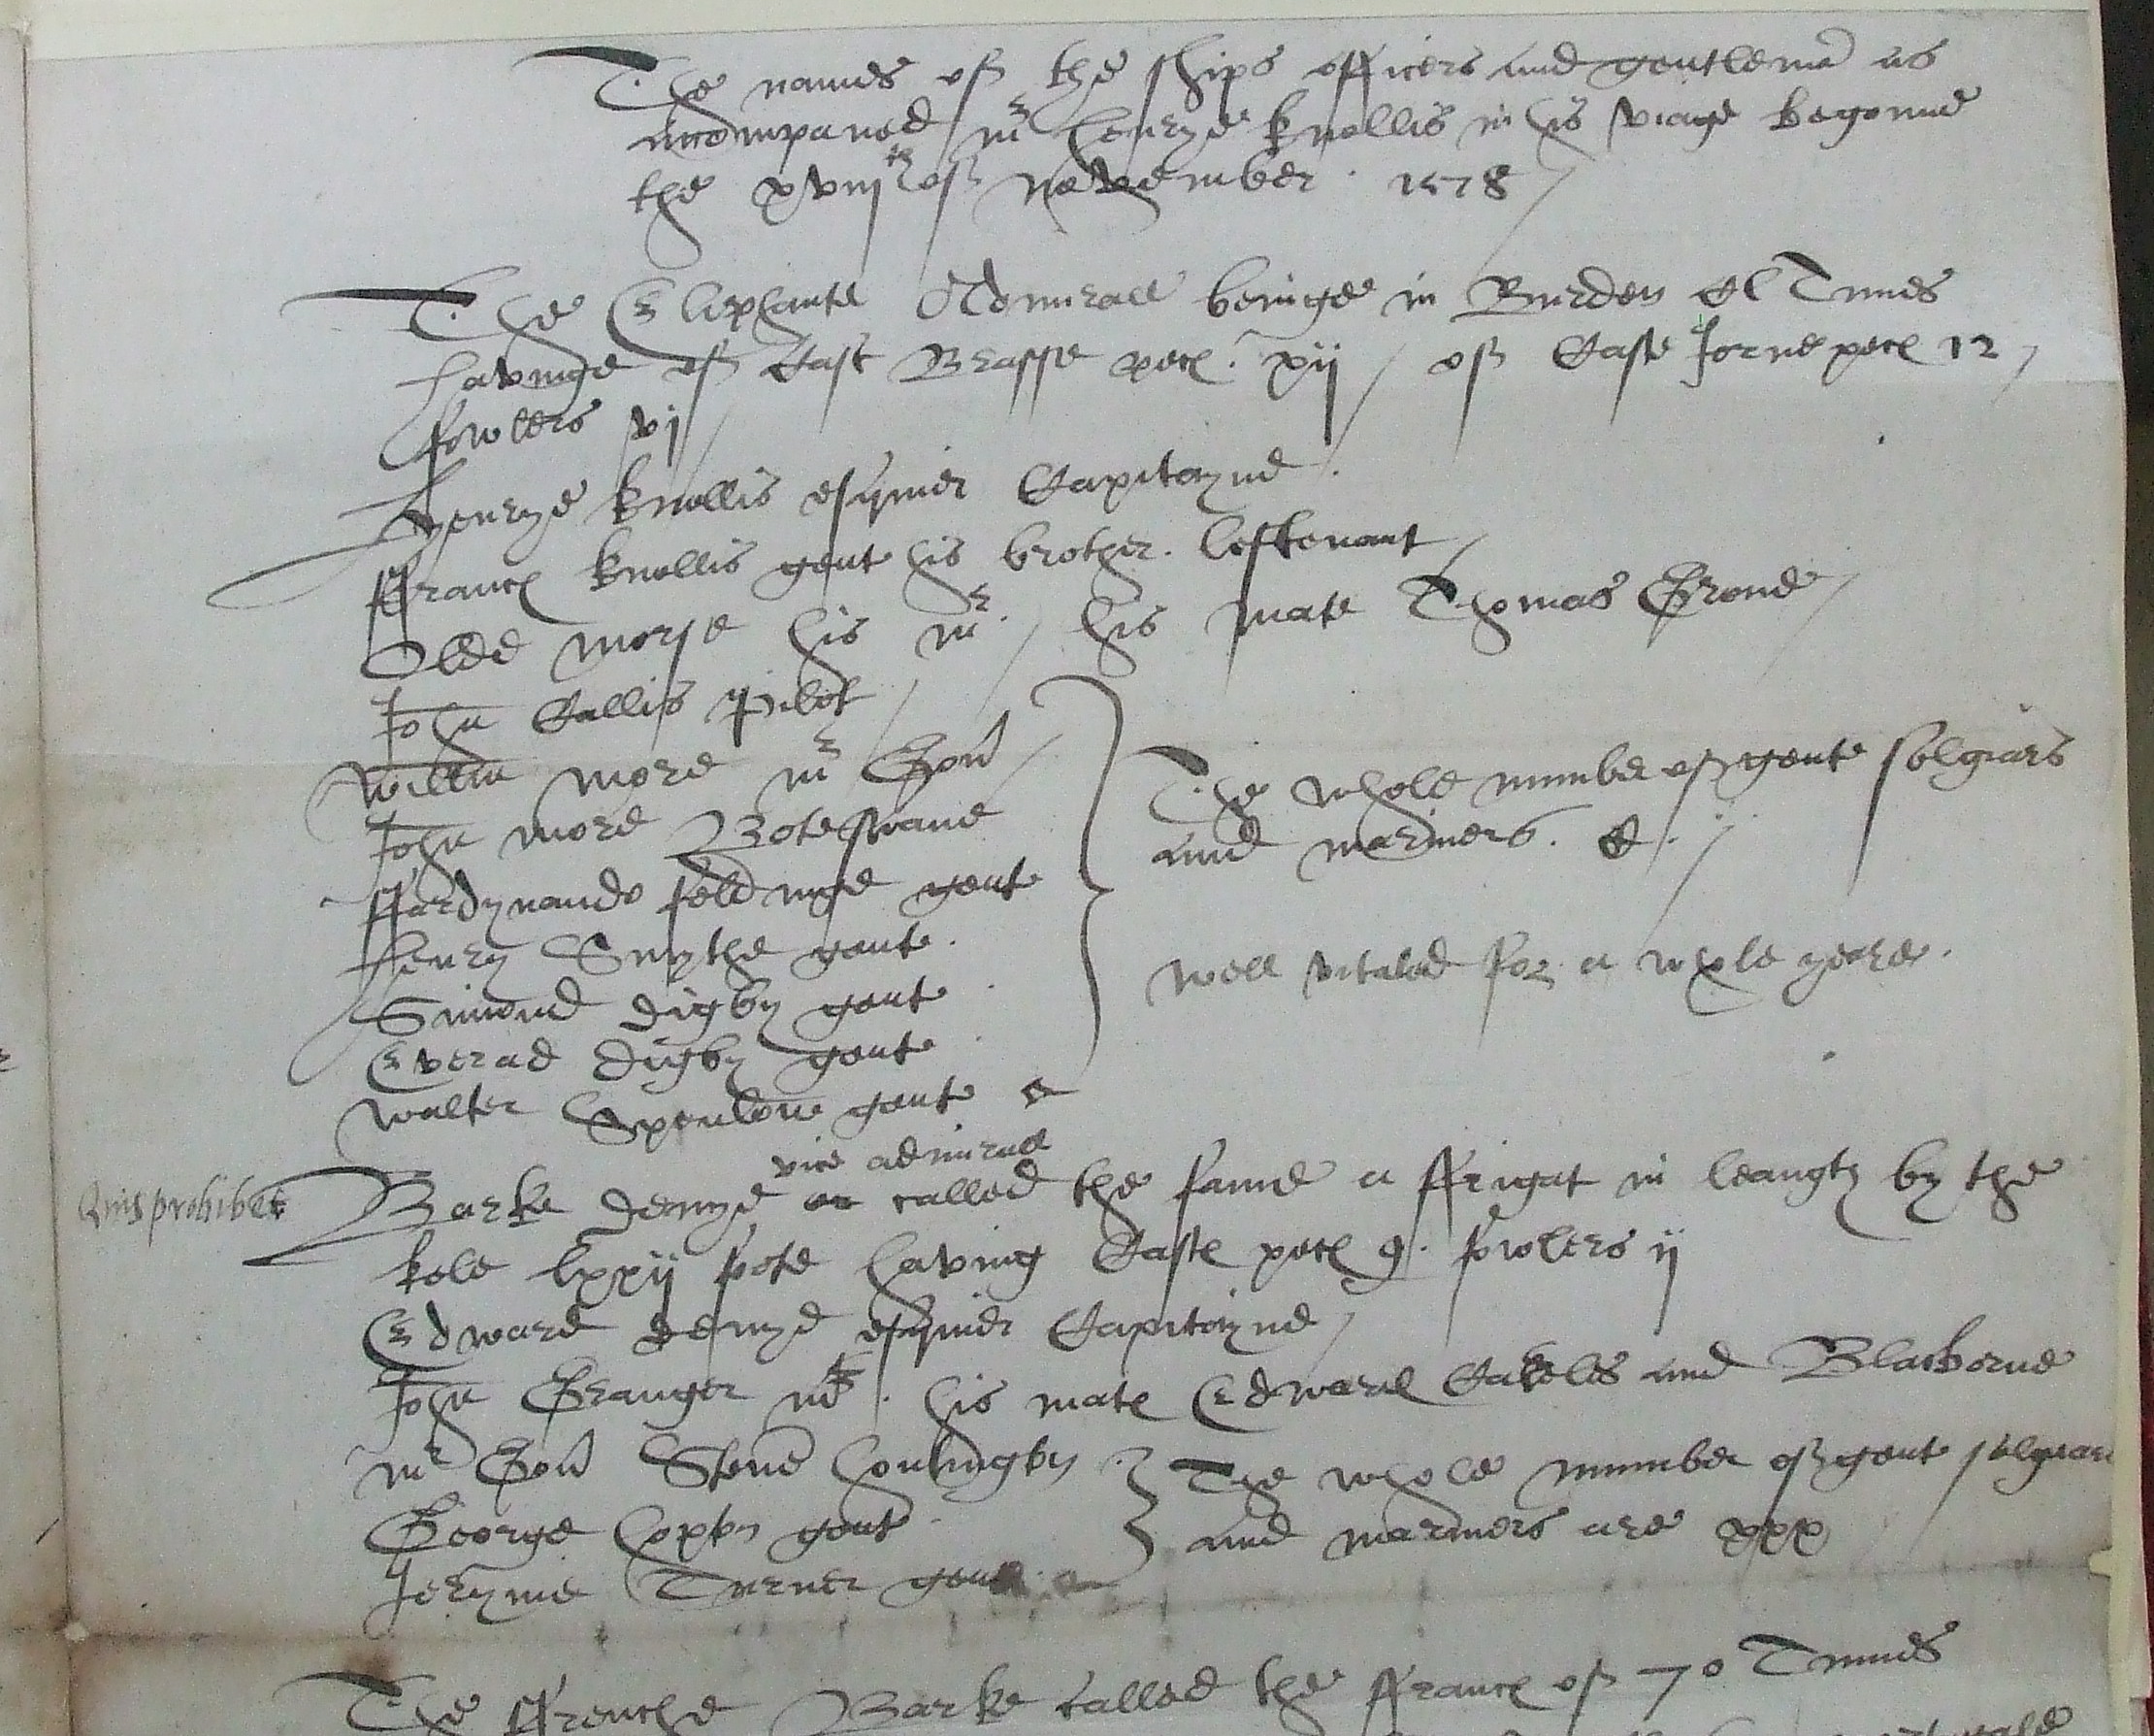 The names of the ships officers and gentlemē as
accompaned mr henrye knollis in his viage begonne
the xviijth of november . 1578 /
The Eliphante Admirall beinge in Burden CL Tunes
havinge of Cast Brasse peces xij / of Caste Jorne peces 12 /
fowlers vj /
Henrye knollis esquier Capitayne .
ffrances knollis gent his brother . leftenant /
Olde morse his mr . / his mate Thomas Grene /
John Callis Pilot /
Willm more mr Gon̄ /
John more Boteswane
ffardynando feldinge gent
henry Smythe gente .
Simond digby gent .
Everad digby gent .
walter Spenlow gente &
The whole number of gente solgiars
and mariners . C . /
well vitaled for a whole yeare .
Quis prohibet
vice admirall
Barke denye or called the fame a ffrigat in leangth by the
kele lxxij fote having Caste peces 9 . fowlers ij
Edward denye esquier Capitayne /
John Granger mr . his mates Edward and Blackborne
mr Gon̄ Steuē
George gent .
Jeryme Turner gent
The whole number of gent solgears
and mariners are xxx
The ffrenche Barke called the ffrances of 70 Tunnes